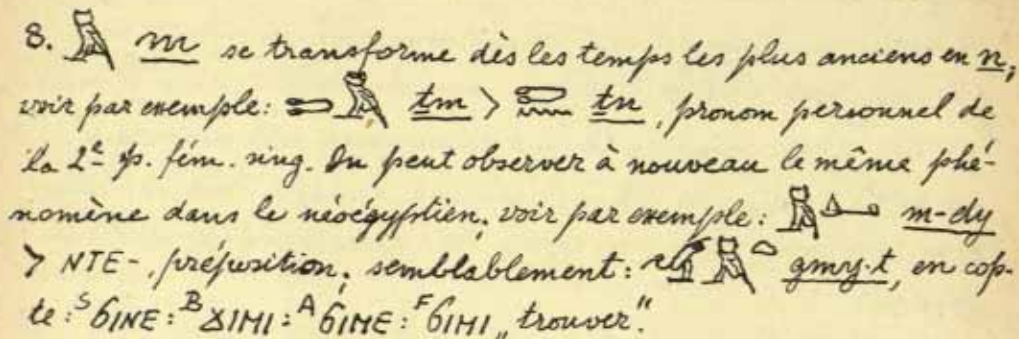 8. 𓅓 m se transforme dès les temps les plus anciens en n;
voir par exemple: 𓍿𓅓 ṯm > 𓍿𓈖 ṯn, pronom personnel de
la 2e p. fém. sing. On peut observer à nouveau le même phé-
nomène dans le néoégyptien; voir par exemple: 𓅓 m-dy
> NTE-, préposition; semblablement: 𓅓 gmy·t, en cop-
te: S ϬINE: B ϪIMI: A ϬIME: F ϬIMI „trouver“.